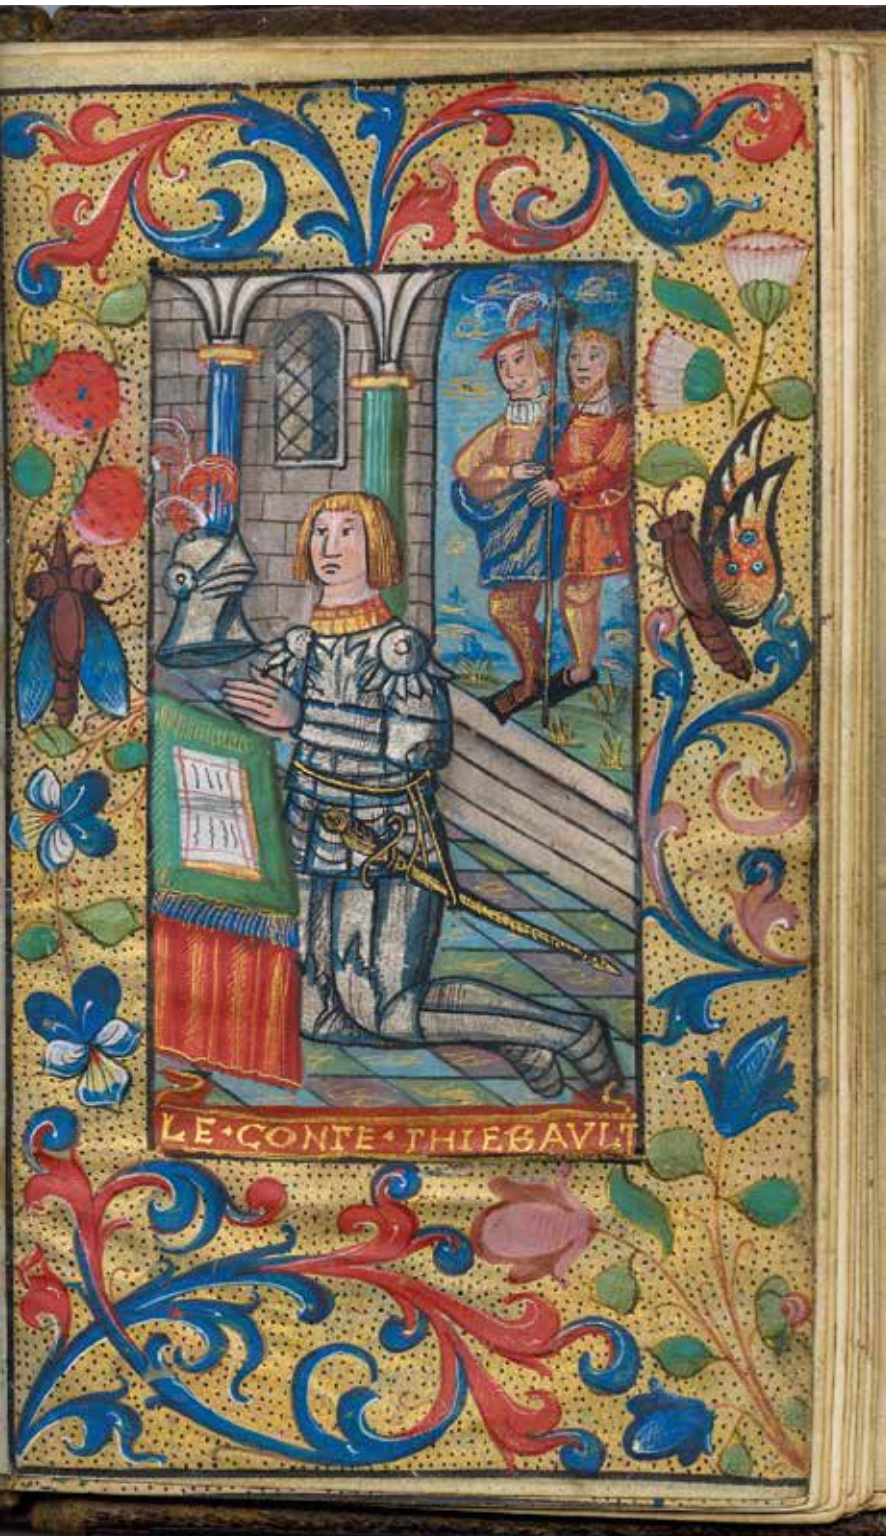 LE·CONTE·THIEBAVLT